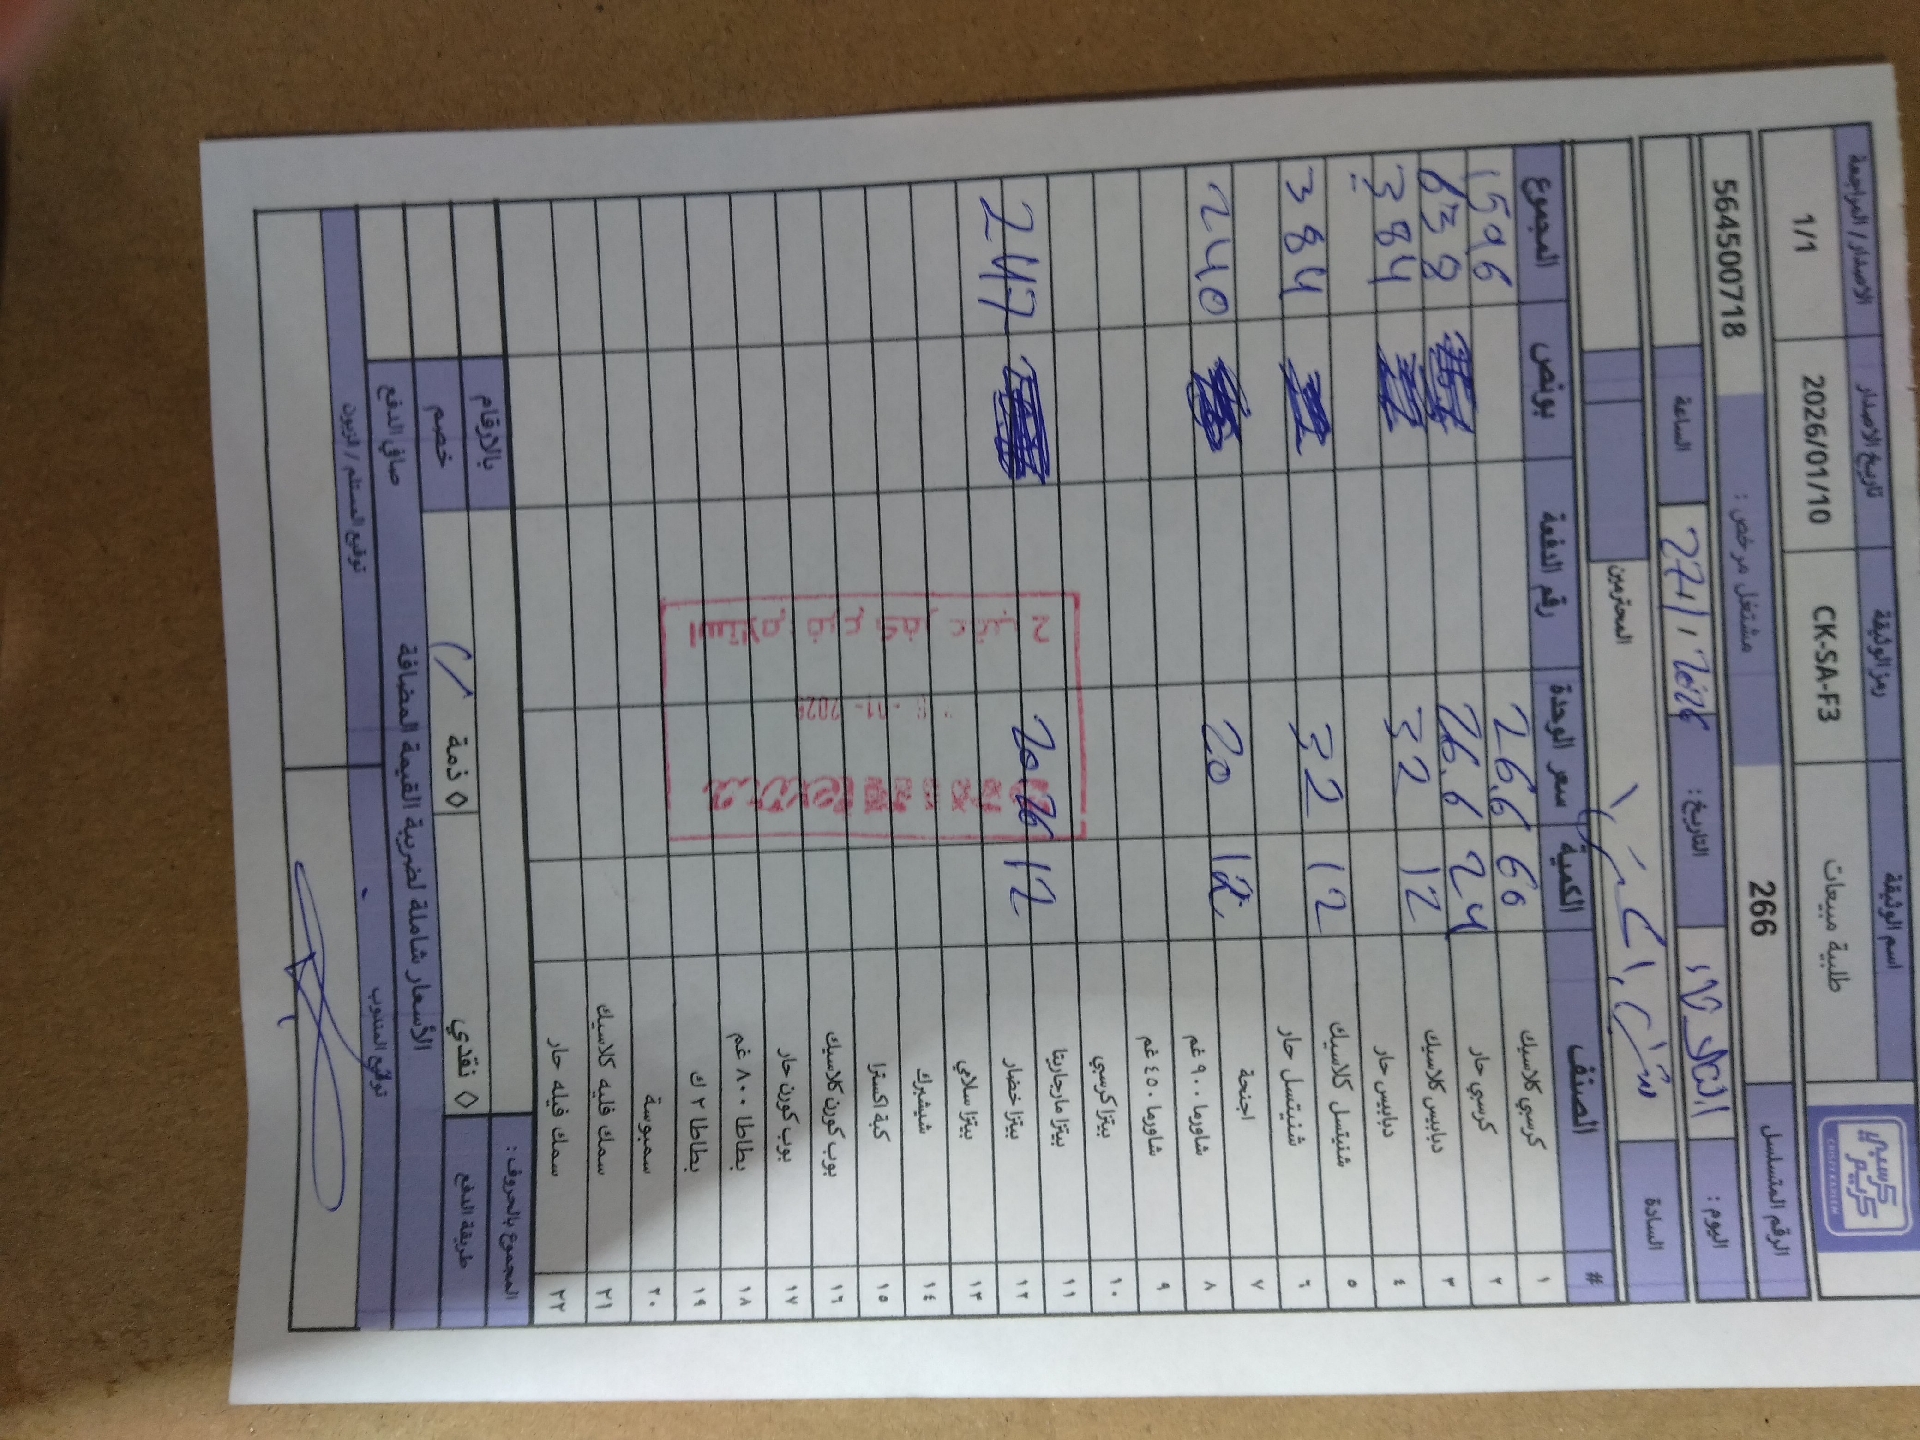 كرسبي كريم
CRISPY KAREEM
اسم الوثيقة رمز الوثيقة تاريخ الاصدار الاصدار / المراجعة
طلبية مبيعات CK-SA-F3 2026/01/10 1/1
الرقم المتسلسل 266 مشتغل مرخص : 564500718
اليوم : الثلاثاء التاريخ : الساعة
السادة المحترمين
# الصنف الكمية سعر الوحدة رقم الدفعة بونص المجموع
١ كرسبي كلاسيك 60 26.6 1596
٢ كرسبي حار 24 26.6 638
٣ دبابيس كلاسيك 12 32 384
٤ دبابيس حار
٥ شنيتسل كلاسيك 12 32 384
٦ شنيتسل حار
٧ اجنحة 12 20 240
٨ شاورما ٩٠٠ غم
٩ شاورما ٤٥٠ غم
١٠ بيتزا كرسبي
١١ بيتزا مارجاريتا 12 247
١٢ بيتزا خضار
١٣ بيتزا سلامي
١٤ شيشبرك
١٥ كبة اكسترا
١٦ بوب كورن كلاسيك
١٧ بوب كورن حار
١٨ بطاطا ٨٠٠ غم
١٩ بطاطا ٢ ك
٢٠ سمبوسة
٢١ سمك فليه كلاسيك
٢٢ سمك فيله حار
المجموع بالحروف : بالارقام
طريقة الدفع ◊ نقدي ◊ ذمة خصم
الأسعار شاملة لضريبة القيمة المضافة صافي الدفع
توقيع المندوب توقيع المستلم / الزبون
استلام فرع كفر عقب 2